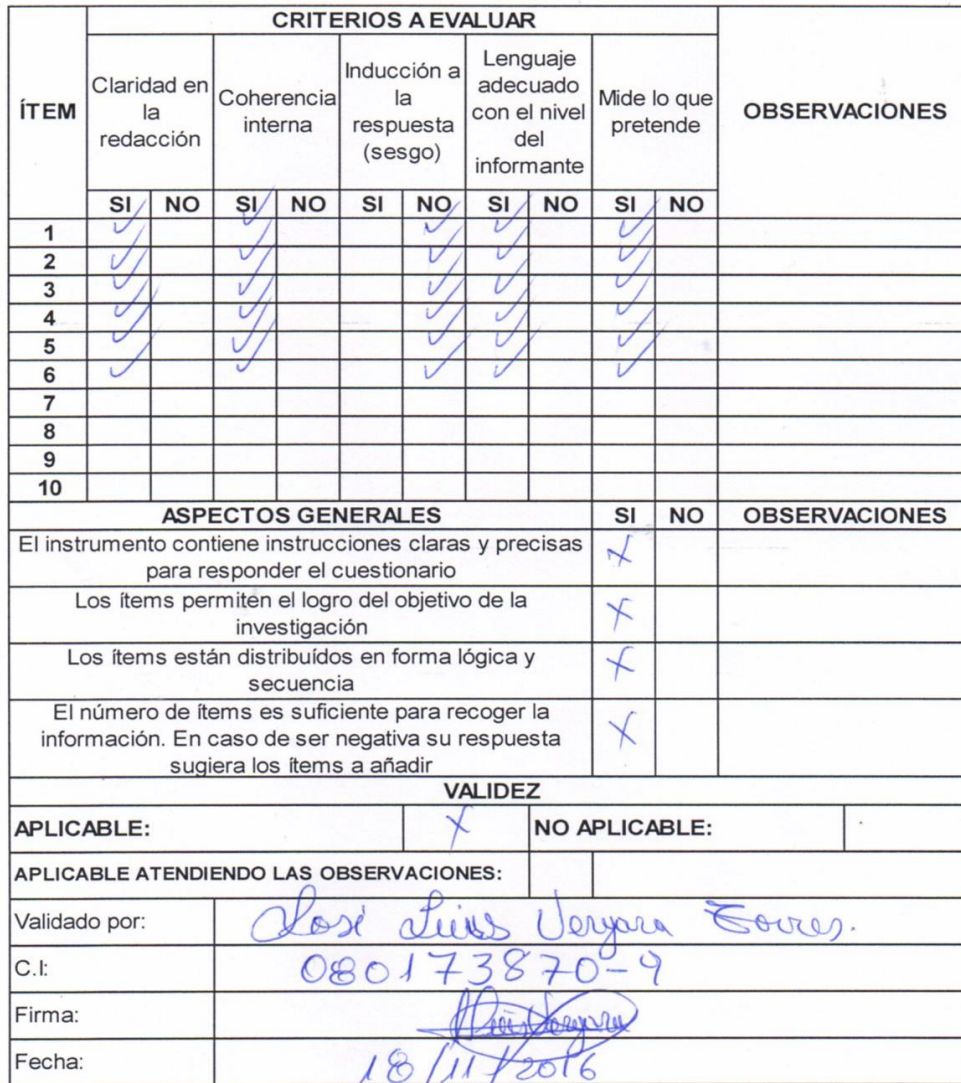 CRITERIOS A EVALUAR
ÍTEM
Claridad en
la
redacción
Coherencia
interna
Inducción a
la
respuesta
(sesgo)
Lenguaje
adecuado
con el nivel
del
informante
Mide lo que
pretende
OBSERVACIONES
SI NO SI NO SI NO SI NO SI NO
1 ✓ ✓ ✓ ✓ ✓
2 ✓ ✓ ✓ ✓ ✓
3 ✓ ✓ ✓ ✓ ✓
4 ✓ ✓ ✓ ✓ ✓
5 ✓ ✓ ✓ ✓ ✓
6 ✓ ✓ ✓ ✓ ✓
7
8
9
10
ASPECTOS GENERALES SI NO OBSERVACIONES
El instrumento contiene instrucciones claras y precisas X
para responder el cuestionario
Los ítems permiten el logro del objetivo de la X
investigación
Los ítems están distribuídos en forma lógica y X
secuencia
El número de ítems es suficiente para recoger la
información. En caso de ser negativa su respuesta X
sugiera los ítems a añadir
VALIDEZ
APLICABLE: X NO APLICABLE:
APLICABLE ATENDIENDO LAS OBSERVACIONES:
Validado por: José Luis Vergara Torres.
C.I: 080173870-9
Firma: Luis Vergara
Fecha: 18/11/2016